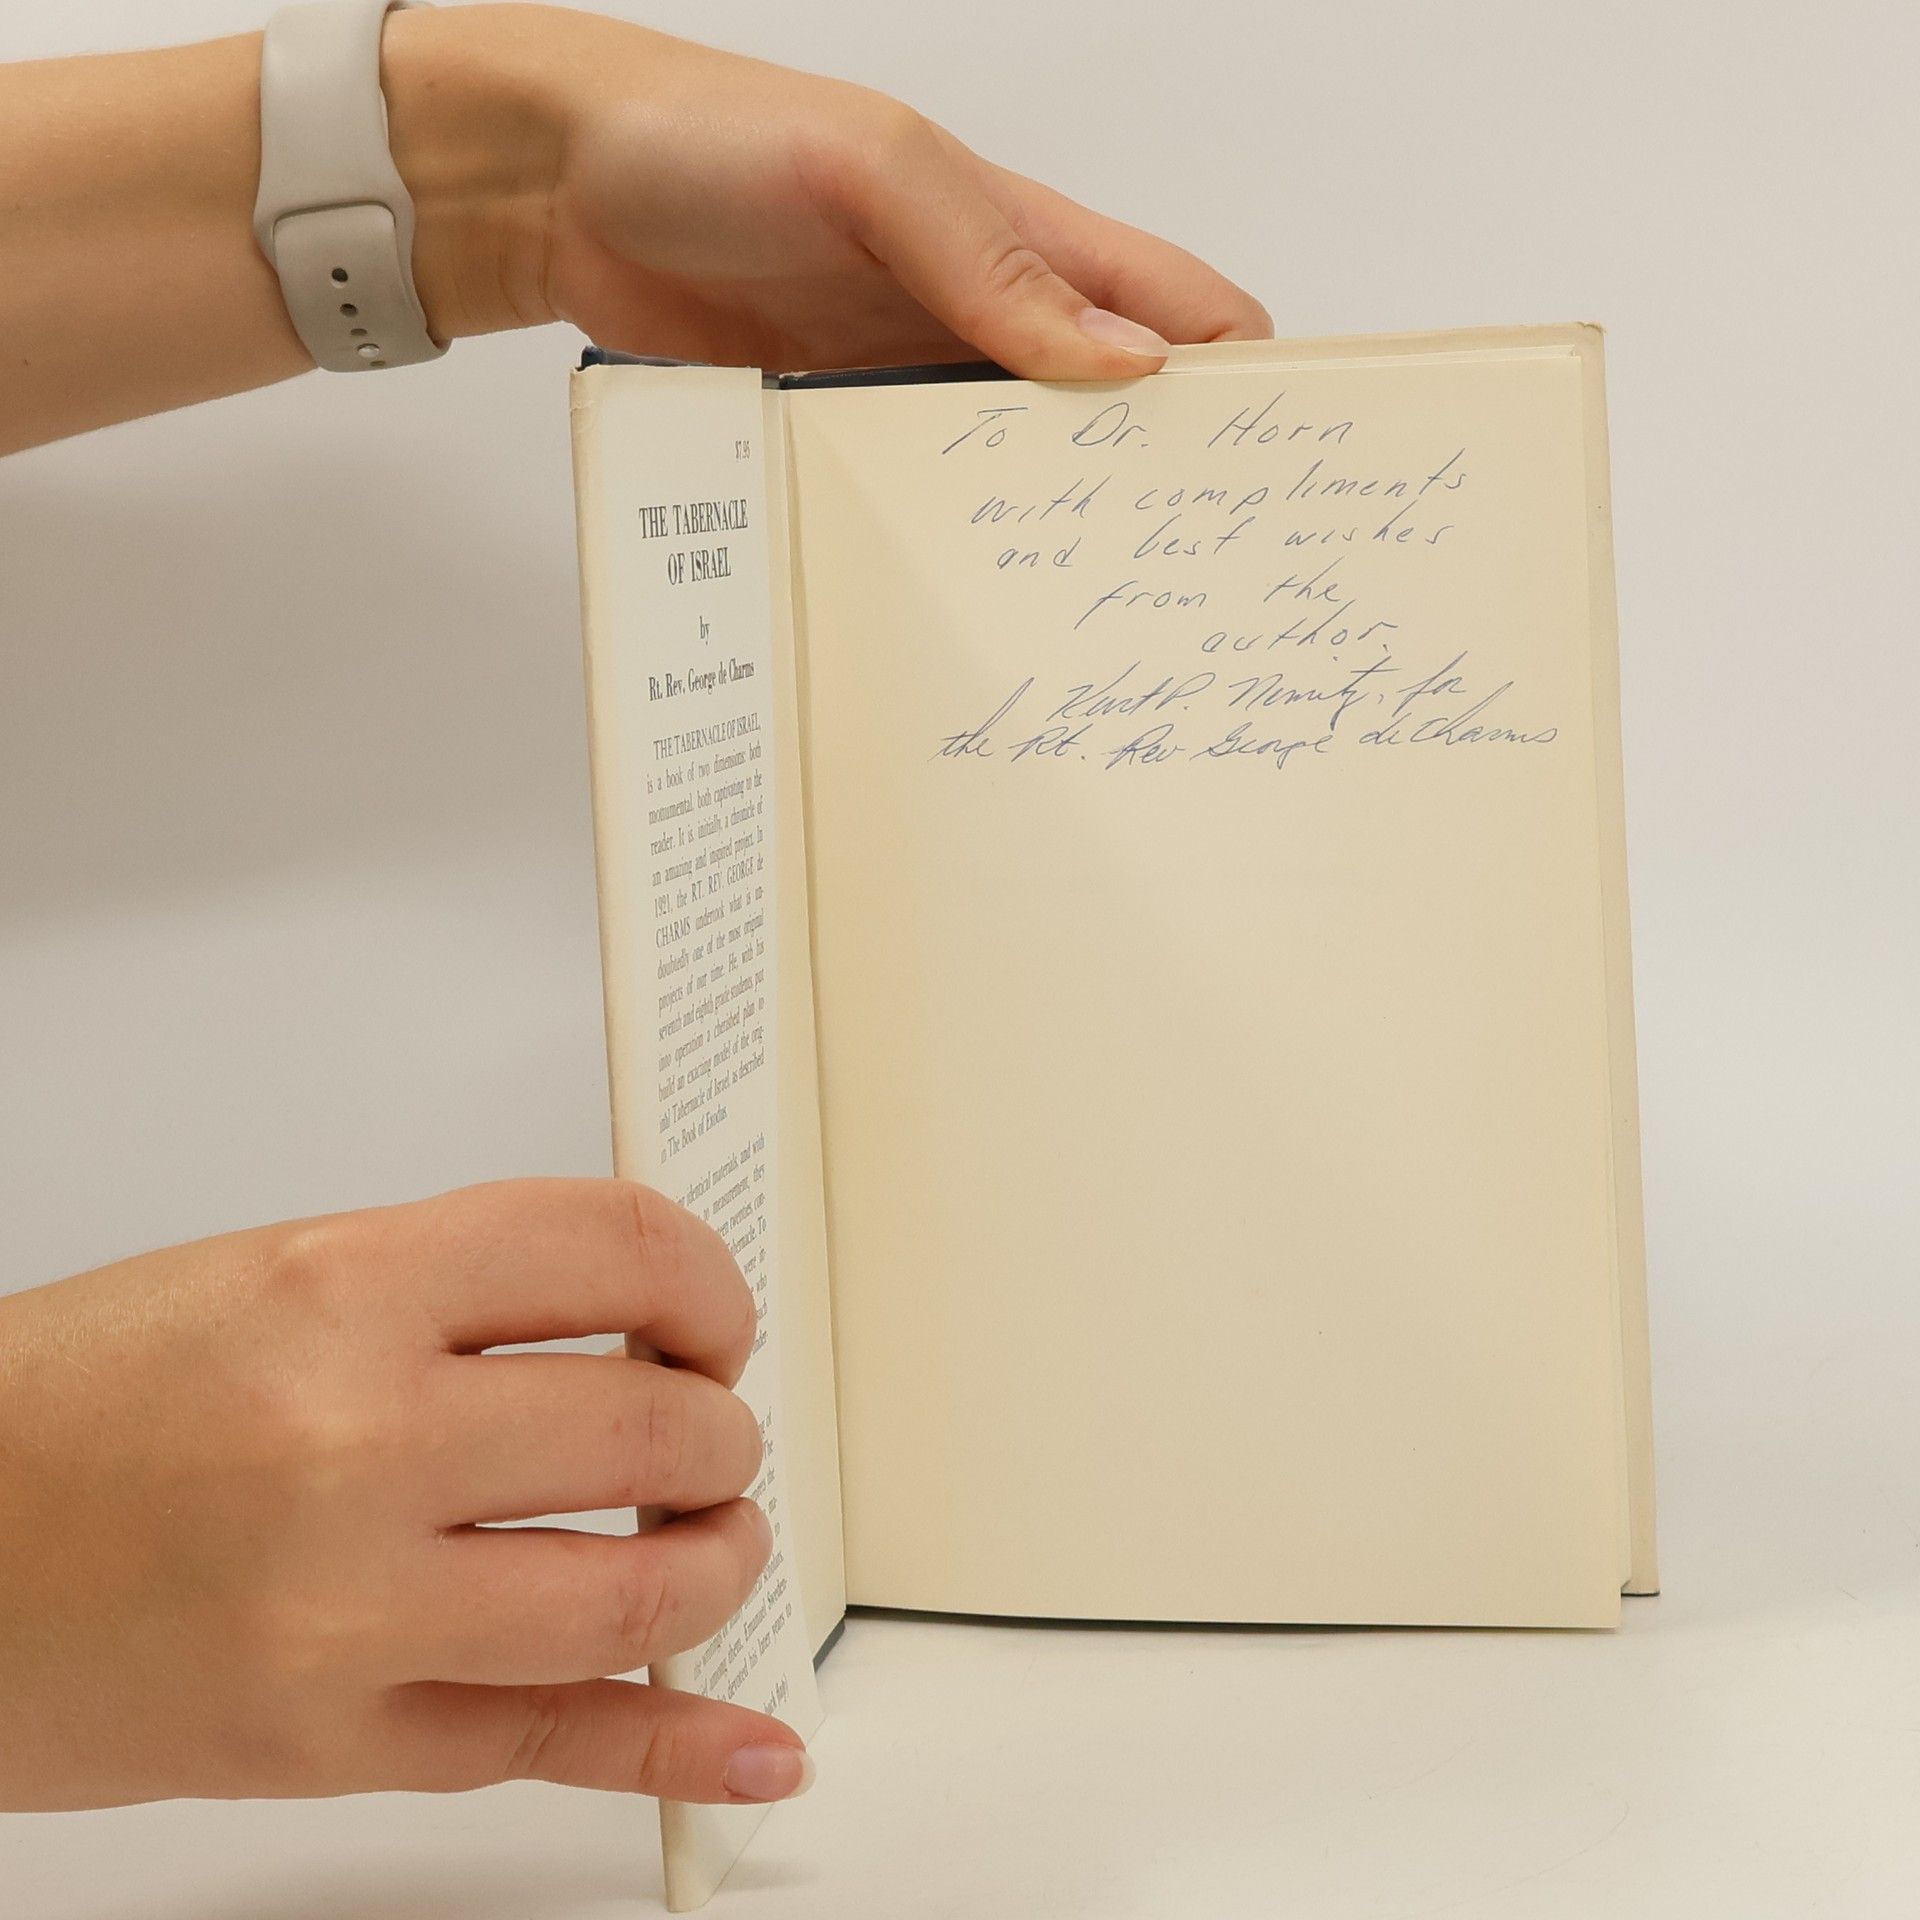 $7.95
THE TABERNACLE
OF ISRAEL
by
Rt. Rev. George de Charms
THE TABERNACLE OF ISRAEL,
is a book of two dimensions: both
monumental, both captivating to the
reader. It is, initially, a chronicle of
an amazing and inspired project. In
1921, the RT. REV. GEORGE de
CHARMS undertook what is un-
doubtedly one of the most original
projects of our time. He, with his
seventh and eighth grade students, put
into operation a cherished plan to
build an exacting model of the orig-
inal Tabernacle of Israel, as described
in The Book of Exodus.
identical materials, and with
to measurement, they
twenties, con-
Tabernacle. To
were in-
who
such
of
The
the
ma-
to
scholars,
among them, Emanuel Sweden-
devoted his later years to
back flap)
To Dr. Horn
with compliments
and best wishes
from the
author.
Kurt P. Nemitz, for
the Rt. Rev George de Charms